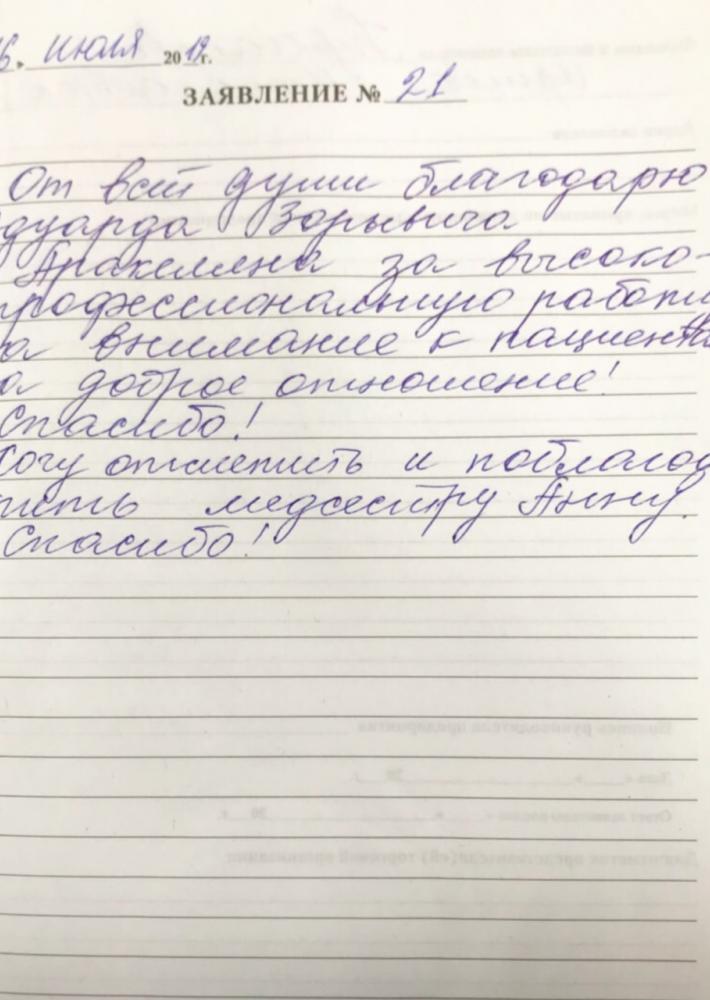 6. июля 2019г.
ЗАЯВЛЕНИЕ № 21
От всей души благодарю
дуарда Зорьевича
Аракеляна за высоко-
профессиональную работу
а внимание к пациента
а доброе отношение!
Спасибо!
Хочу отметить и поблагод
рить медсестру Анну.
Спасибо!